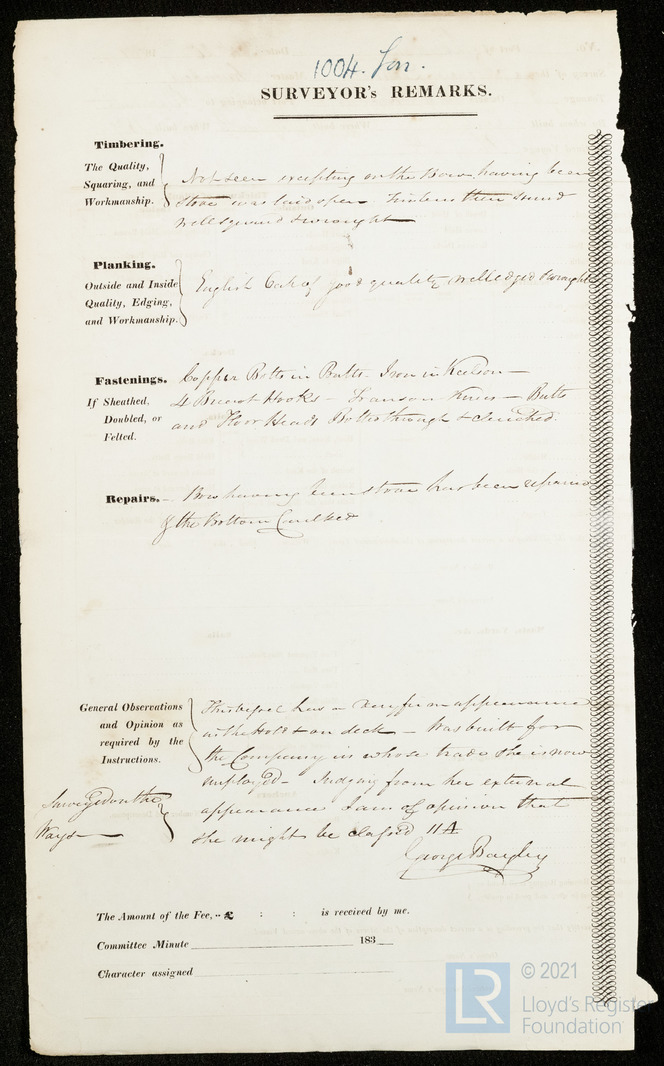 1004. Lon.
SURVEYOR's REMARKS.
Timbering.
The Quality,
Squaring, and
Workmanship.
Not seen excepting on the Bow having been
stove was laid open Timbers then sound
well squared & wrought
Planking.
Outside and Inside
Quality, Edging,
and Workmanship.
English Oak of good quality well edged & wrought
Fastenings.
If Sheathed,
Doubled, or
Felted.
Copper Bolts in Butts Iron in Keelson
4 Breast Hooks - Transom Knees - Butts
and Floor Heads Bolts through & clinched.
Repairs.
Bow having been stove has been repaired
& the Bottom Caulked
General Observations
and Opinion as
required by the
Instructions.
This vessel has a very firm appearance
in the Hold & on deck - Was built for
the Company in whose trade she is now
employed - Judging from her external
appearance I am of opinion that
she might be classed 11 A
Surveyed on the
Ways
George Bayley
The Amount of the Fee, .. £ : : is received by me.
Committee Minute 183
Character assigned
LR
© 2021
Lloyd's Register
Foundation